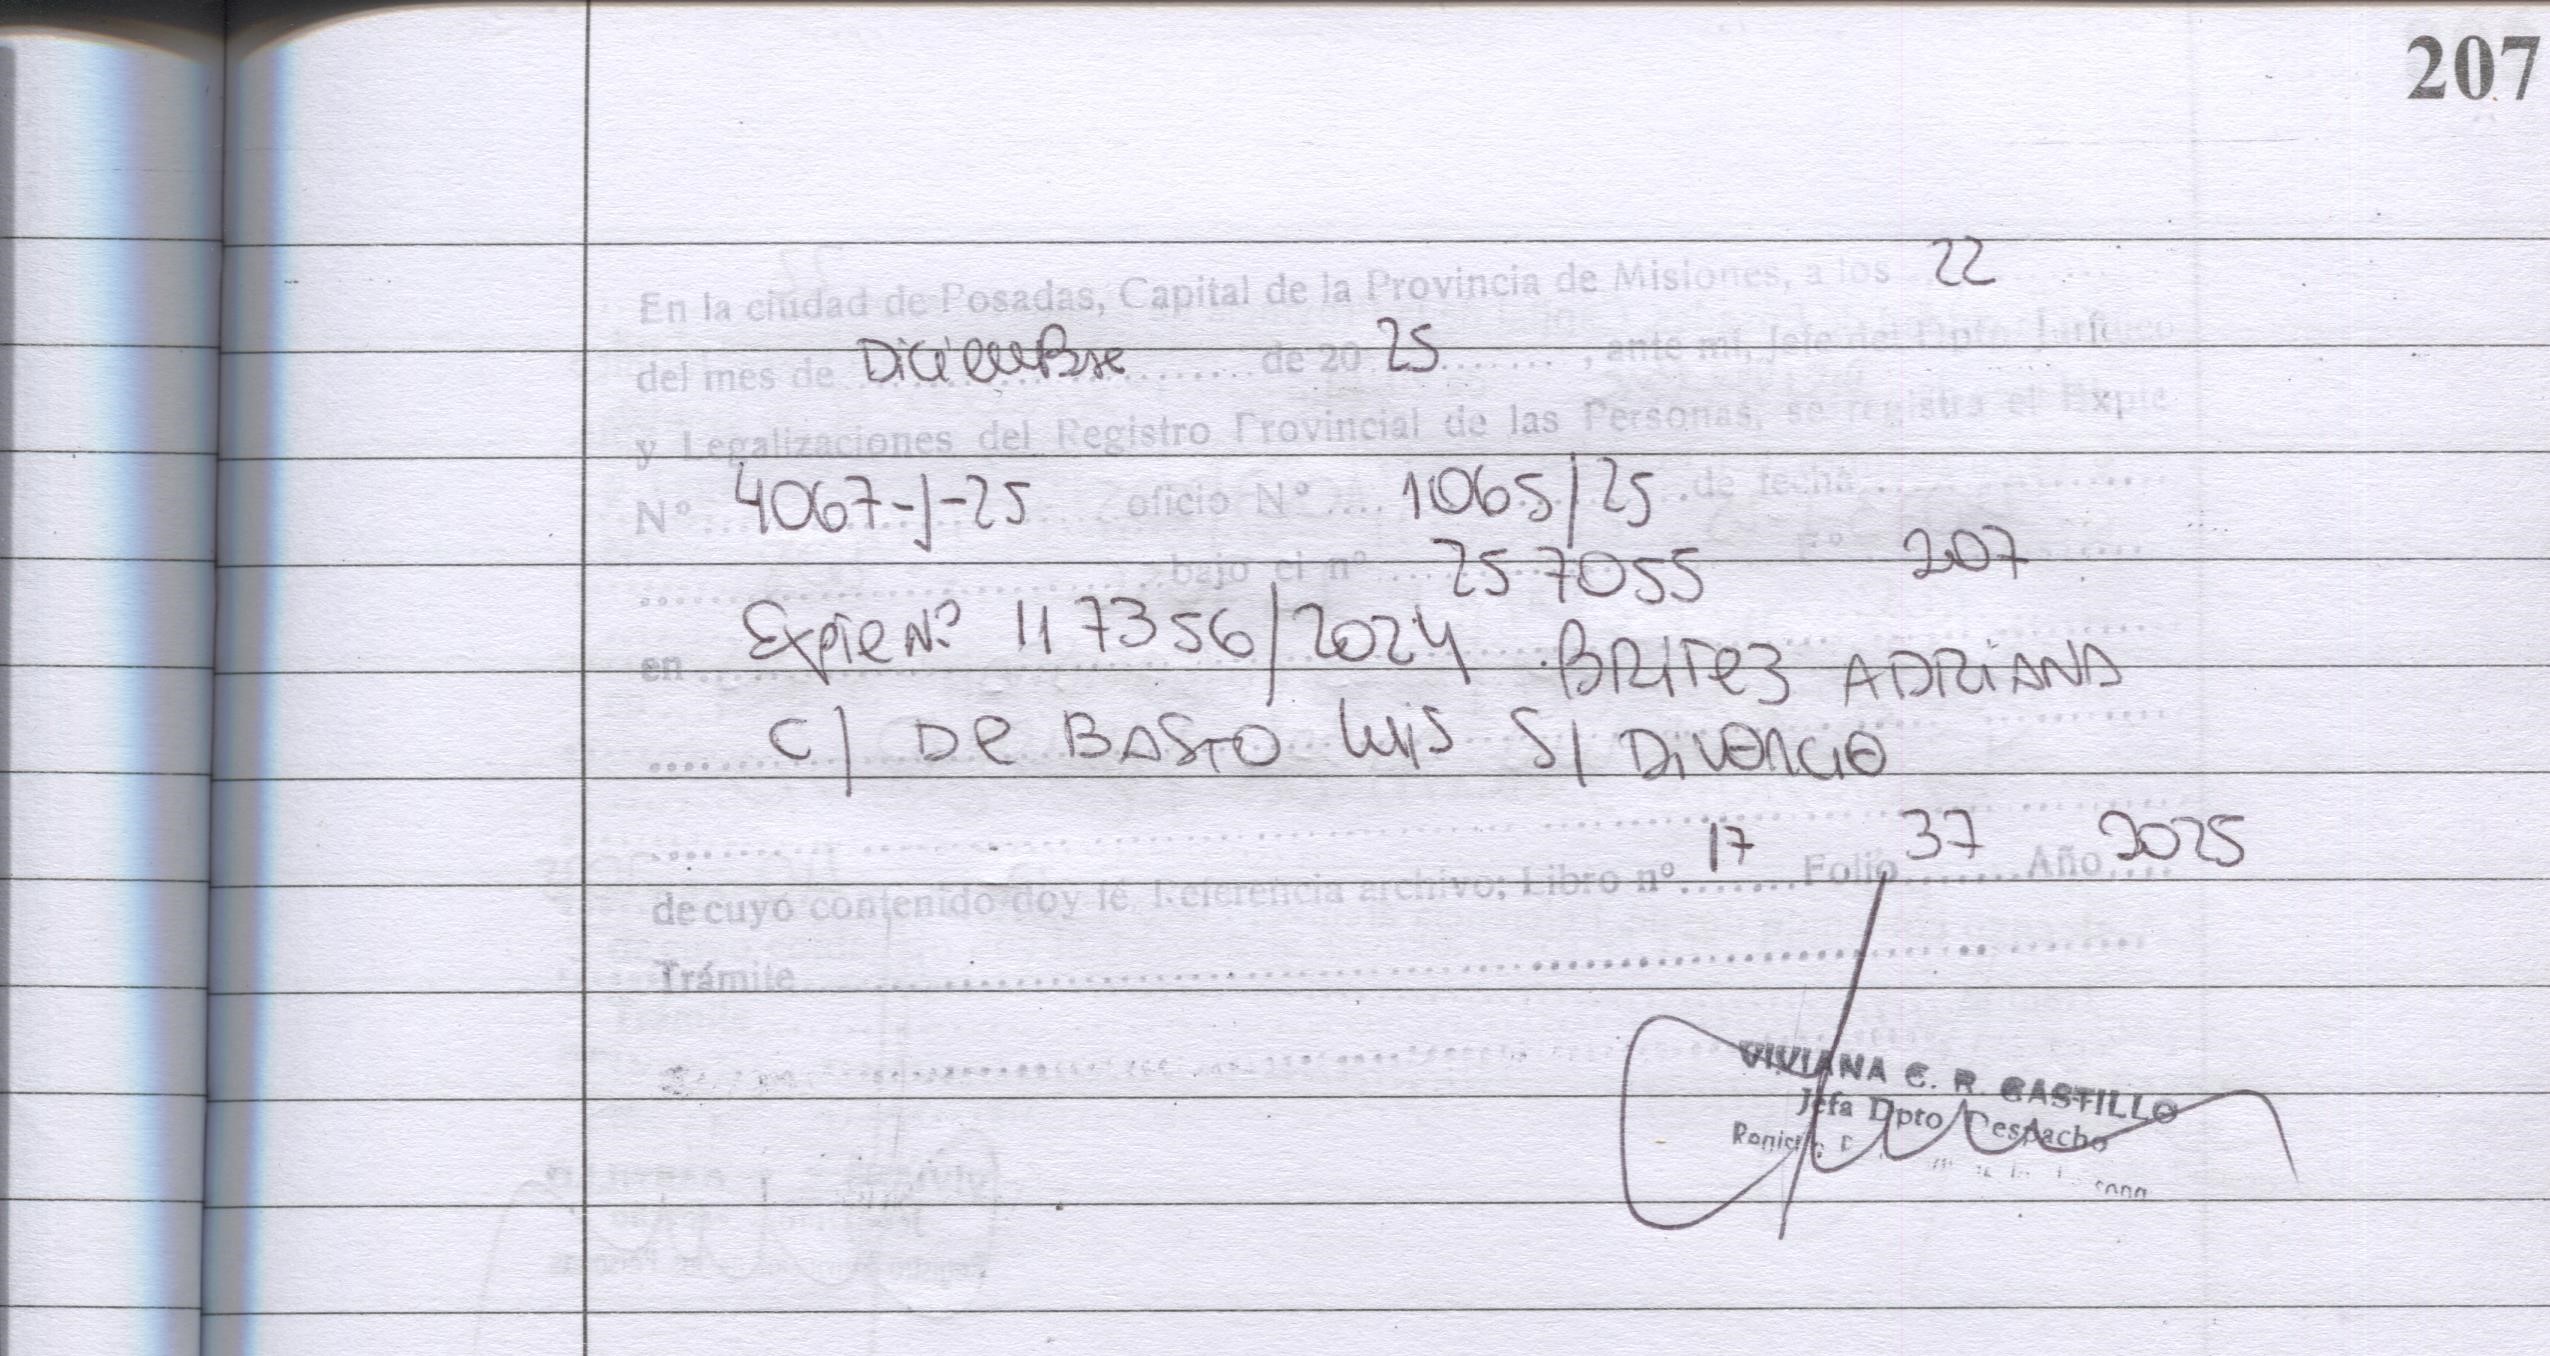 207
En la ciudad de Posadas, Capital de la Provincia de Misiones, a los 22
del mes de Diciembre de 20 25, ante mi, Jefe del Dpto Jurídico
y Legalizaciones del Registro Provincial de las Personas, se registra el Expte
Nº 4067-J-25 oficio Nº 1065/25 de fecha
bajo el nº 257055 Fº 207
en Expte Nº 117356/2024 BRITEZ ADRIANA
C/ DE BASTO LUIS S/ DIVORCIO
de cuyo contenido doy fé. Referencia archivo; Libro nº 17 Folio 37 Año 2025
Trámite
VIVIANA C. R. CASTILLO
Jefa Dpto Despacho